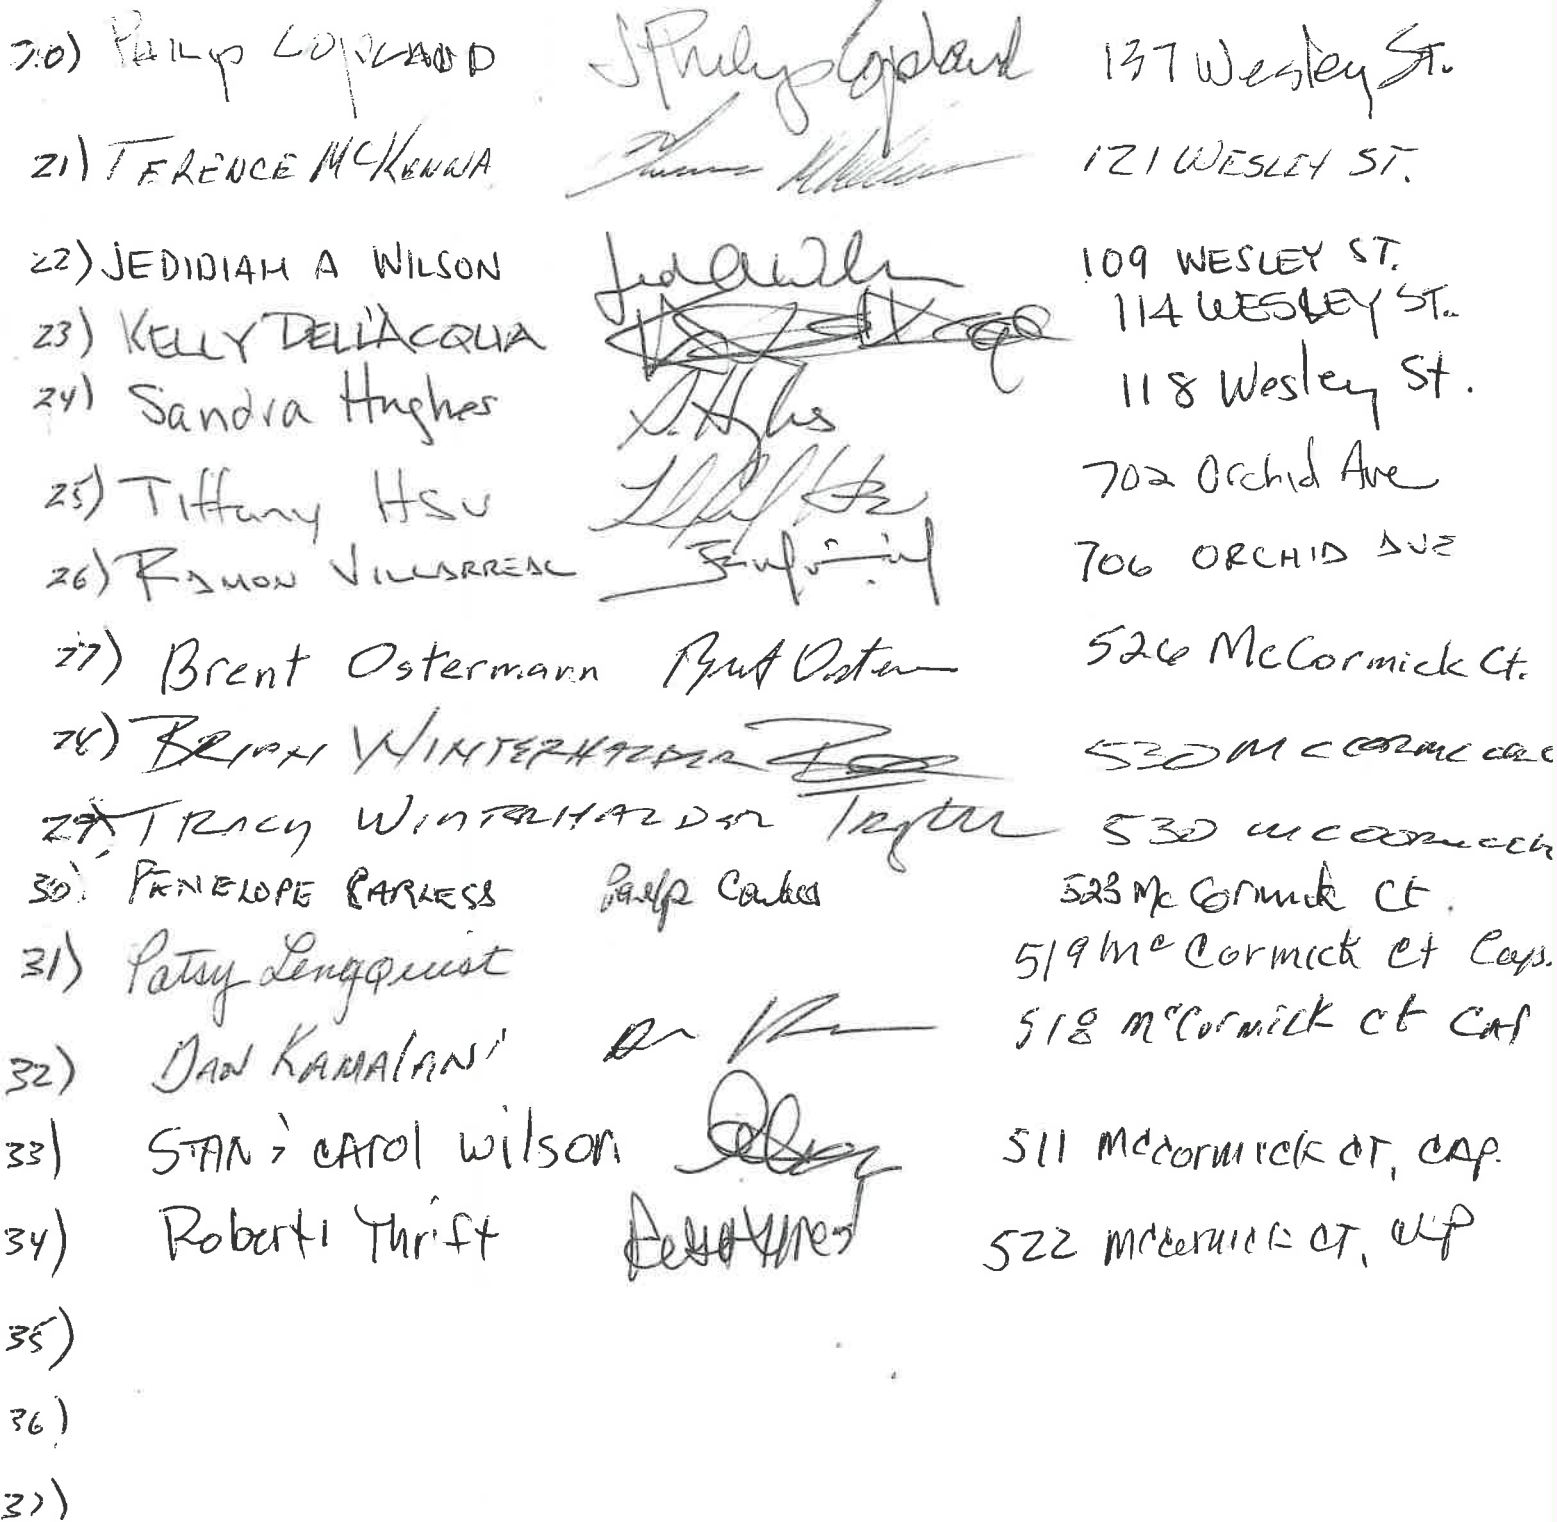 20) Philip Copeland J Philip Copeland 137 Wesley St.
21) TERENCE McKENNA 121 WESLEY ST.
22) JEDIDIAH A WILSON 109 WESLEY ST.
23) KELLY DELL'ACQUA 114 WESLEY ST.
24) Sandra Hughes S. Hughes 118 Wesley St.
25) Tiffany Hsu 702 Orchid Ave
26) RAMON VILLARREAL 706 ORCHID AVE
27) Brent Ostermann 526 McCormick Ct.
28) BRIAN WINTERHALDER 530 McCORMICK
29) TRACY WINTERHALDER 530 McCORMICK
30) PENELOPE 523 McCormick Ct.
31) Patsy Lengquist 519 McCormick Ct Cap.
32) DAN KAMALANI 518 McCormick Ct CAP
33) STAN & CAROL WILSON 511 McCormick CT, CAP.
34) Thrift 522 McCormick CT, CAP
35)
36)
37)